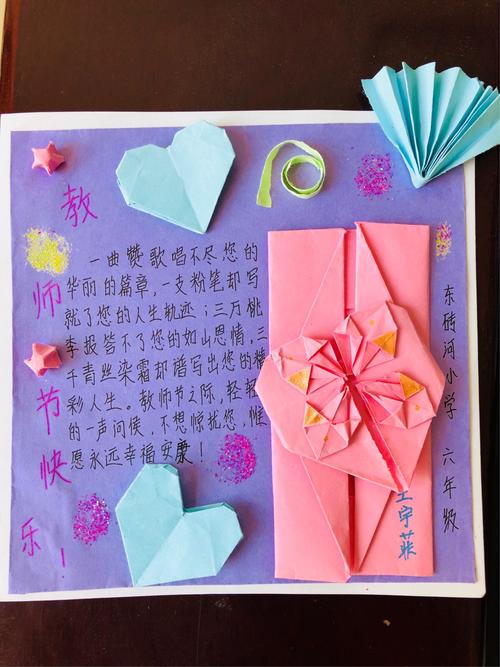 教师节快乐！
一曲赞歌唱不尽您的
华丽的篇章，一支粉笔却写
就了您的人生轨迹；三万桃
李报答不了您的如山恩情，三
千青丝染霜却谱写出您的精
彩人生。教师节之际，轻轻
的一声问候，不想惊扰您，惟
愿永远幸福安康！
东砖河小学 六年级
王宇菲